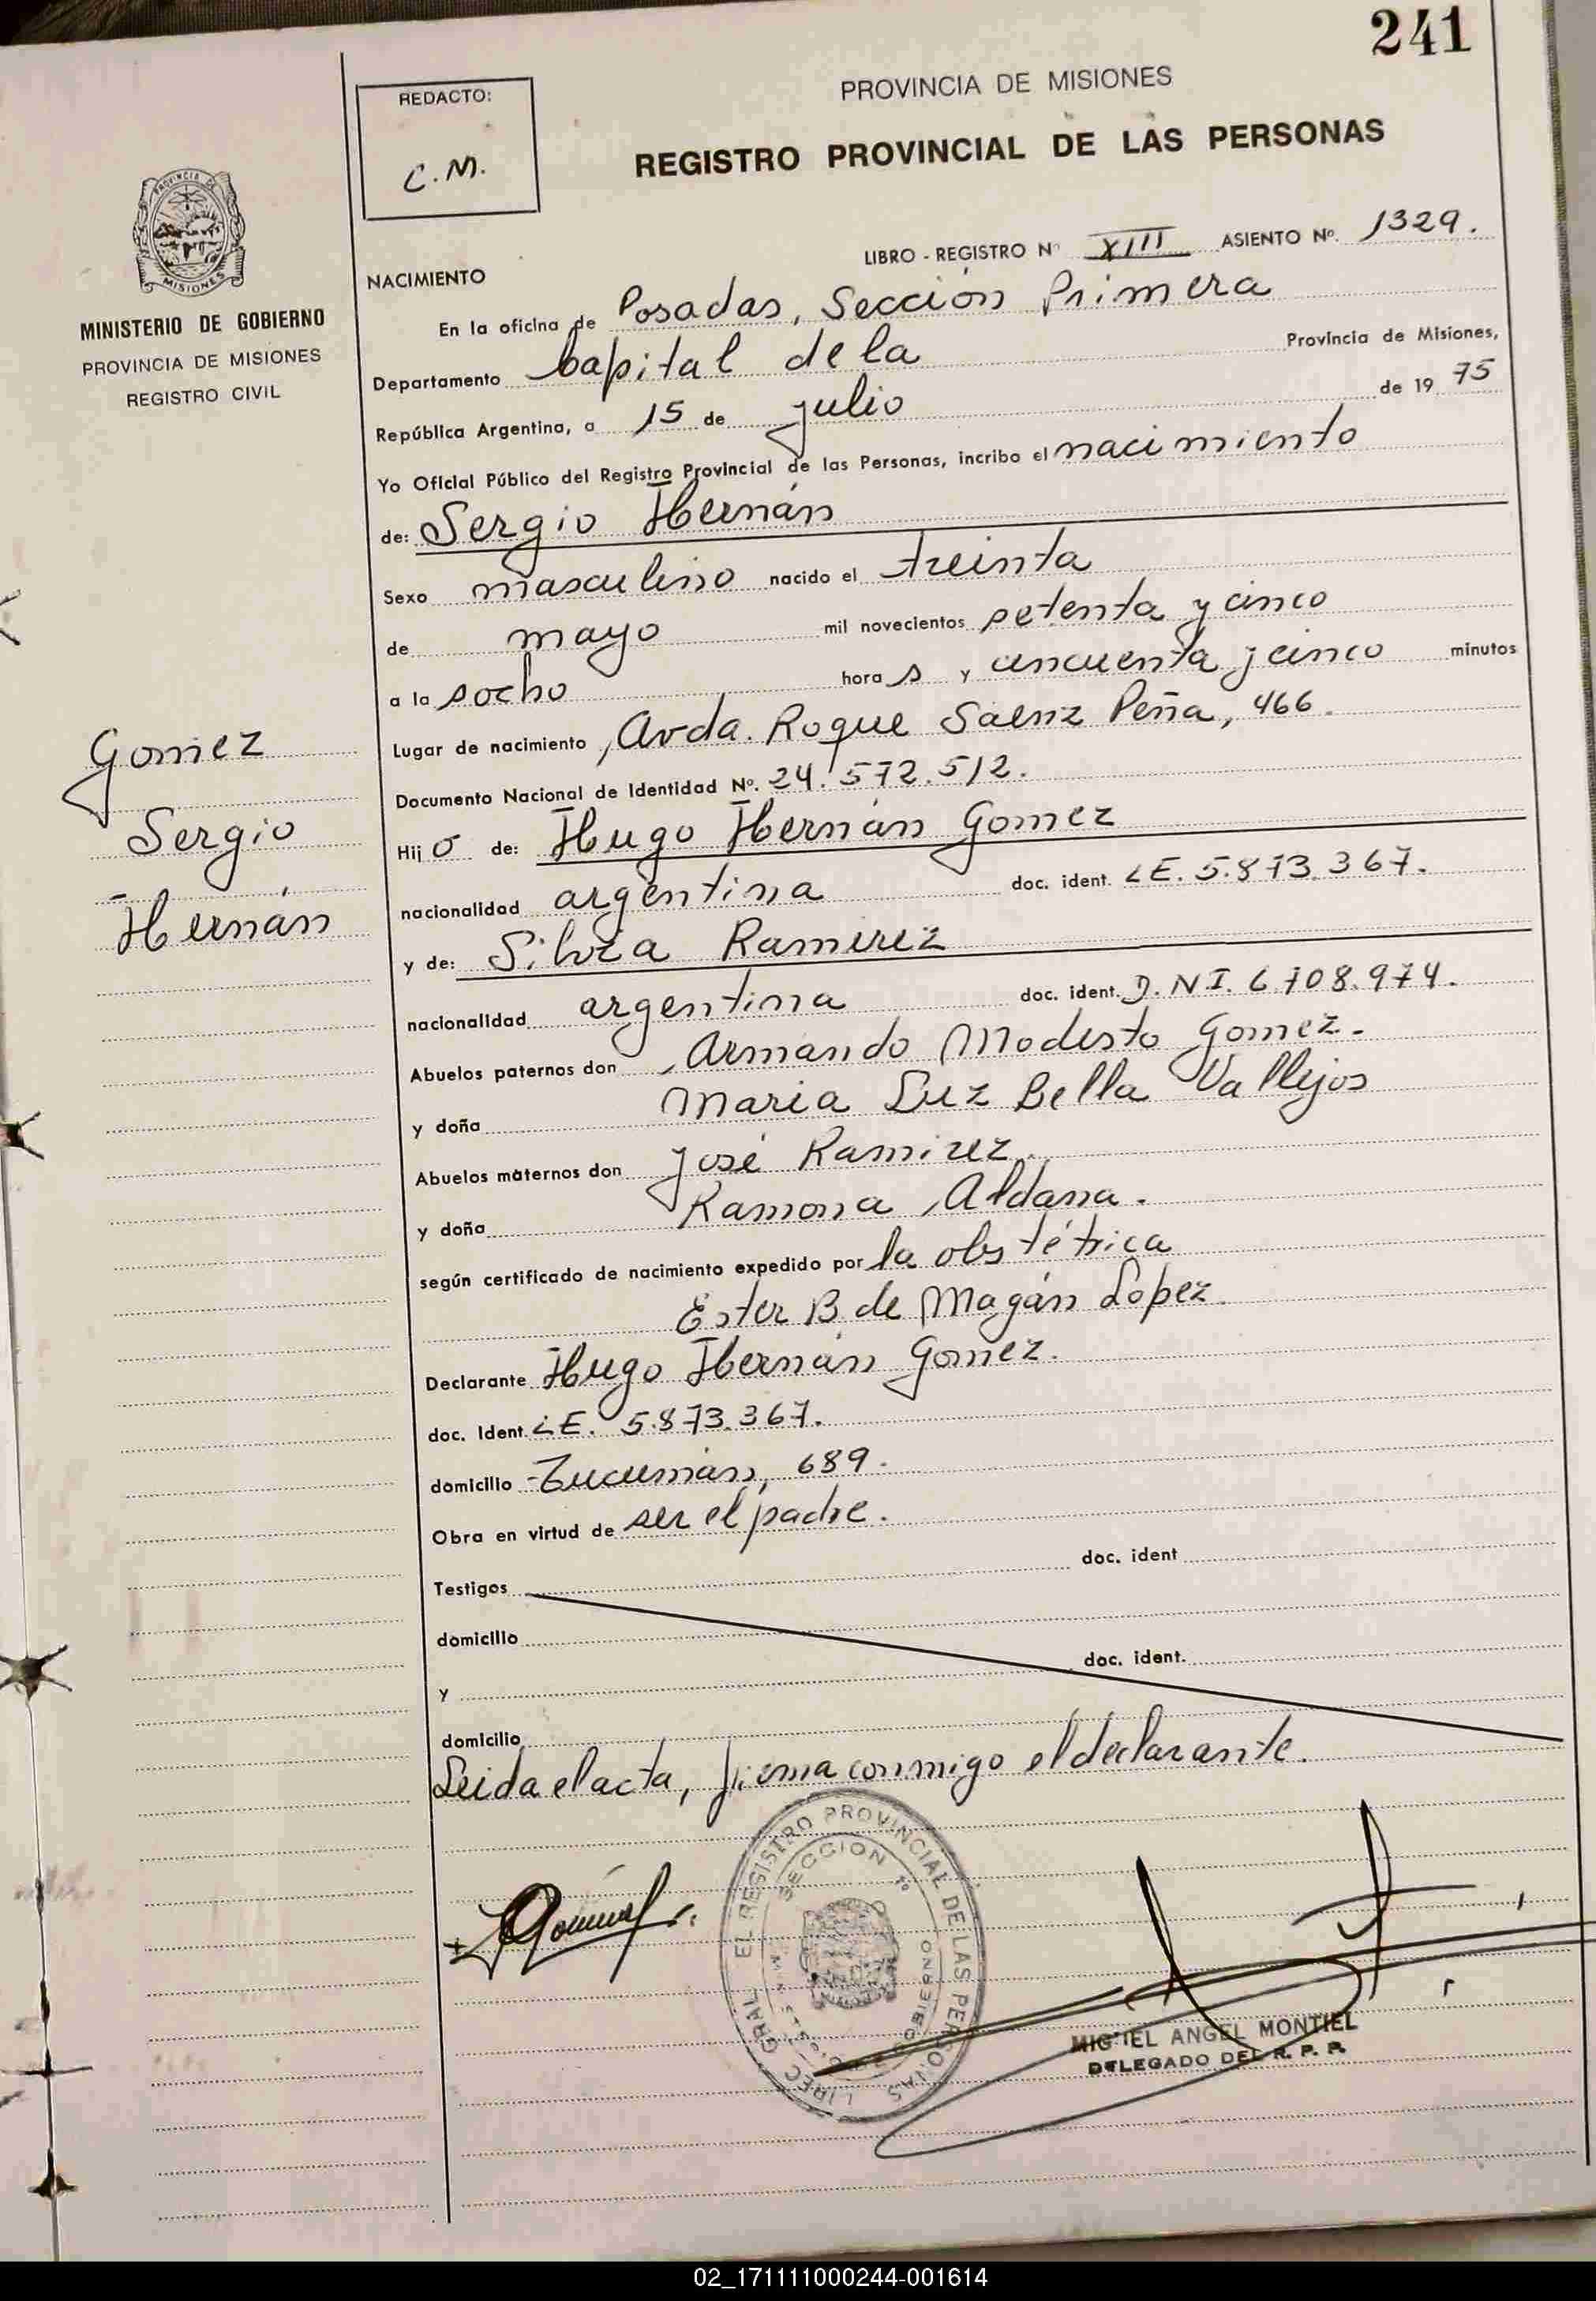 241
PROVINCIA DE MISIONES
REGISTRO PROVINCIAL DE LAS PERSONAS
REDACTO:
C.M.
MISIONES
MINISTERIO DE GOBIERNO
PROVINCIA DE MISIONES
REGISTRO CIVIL
LIBRO - REGISTRO Nº XIII ASIENTO Nº. 1329.
NACIMIENTO
En la oficina de Posadas, Sección Primera
Departamento Capital de la Provincia de Misiones,
República Argentina, a 15 de julio de 19 75
Yo Oficial Público del Registro Provincial de las Personas, incribo el nacimiento
de: Sergio Hernán
Sexo masculino nacido el treinta
de mayo mil novecientos setenta y cinco
a la s ocho hora s y cincuenta y cinco minutos
Lugar de nacimiento Avda. Roque Saenz Peña, 466.
Documento Nacional de Identidad Nº. 24.572.512.
Hij o de: Hugo Hernán Gomez
nacionalidad argentina doc. ident. LE. 5.873.367.
y de: Silvia Ramirez
nacionalidad argentina doc. ident. D.N.I. 6.708.974.
Abuelos paternos don Armando Modesto Gomez.
y doña Maria Luz Bella Vallejos
Abuelos maternos don José Ramirez
y doña Ramona Aldana.
según certificado de nacimiento expedido por la obstétrica
Ester B. de Magán Lopez.
Declarante Hugo Hernán Gomez.
doc. Ident. LE. 5.873.367.
domicilio Tucumán, 689.
Obra en virtud de ser el padre.
Testigos doc. ident
domicilio
y doc. ident.
domicilio
Leida el acta, firma conmigo el declarante.
Gomez
Sergio
Hernán
EL REGISTRO PROVINCIAL DE LAS PERSONAS
SECCION 1º
MIGUEL ANGEL MONTIEL
DELEGADO DEL R. P. P.
02_171111000244-001614